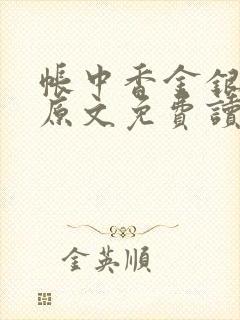 帳中香金銀
原文免費讀
金英順